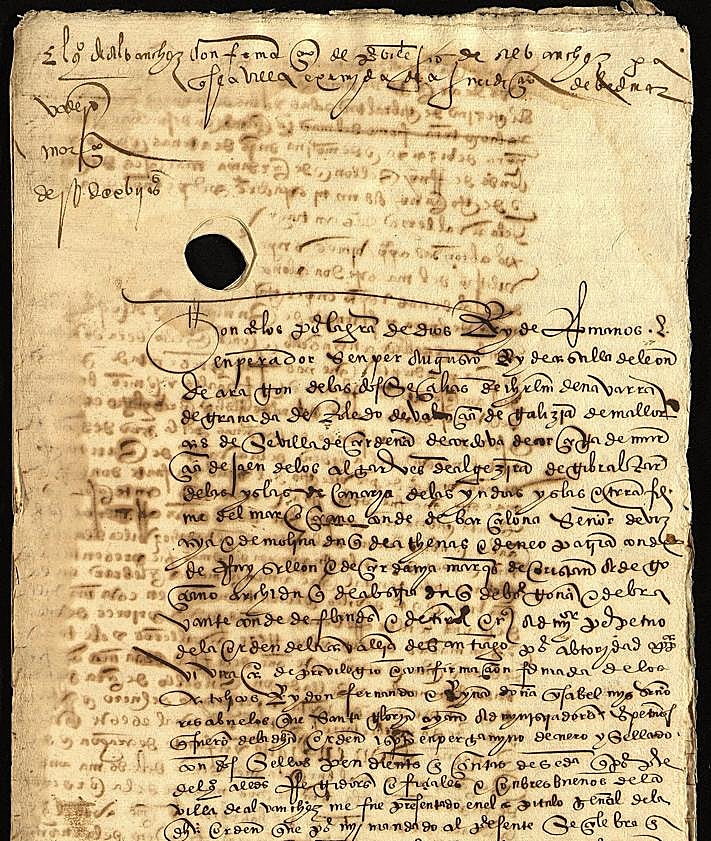 El q̃ de albanchez Confirmaçõ de previlegio de albanchez
q̃ sea villa exsimida de la juridiçõ de bedmar
março
de
Don carlos por la graçia de dios Rey de Romanos. E
enperador senper augusto Rey de castilla de leon
de aragon de las dos seçilias de iherusalem de navarra
de granada de Toledo de valençia de galizia de mallor
cas de Sevilla de çerdeña de cordova de corçega de mur
çia de jaen de los algarves de algezira de gibraltar
de las yslas de canaria de las yndias yslas e tierra fir
me del mar oçeano conde de barçelona Señor de viz
caya e de molina duq̃ de athenas e de neopatria conde
de Ruysellon e de çerdania marqs de oristan e de go
çiano archiduq̃ de abstria duq̃ de borgoña e de bra
vante conde de flandes e de tirol &c. Administrador perpetuo
de la orden de la cavalleria de Santiago por abtoridad app
vi una carta de previlegio e confirmaçion firmada de los
catolicos Rey don fernando e Reyna doña ysabel mis seño
res abuelos que Santa gloria ayan administradores perpetuos
q̃ fueron de la dicha orden escripta en pergamino de cuero y sellado
con dos Sellos pendientes e çintas de seda q̃ por parte
de los alcaldes Regidores e ofiçiales e onbres buenos de la
villa de alvanchez me fue presentado en el capitulo general de la
dicha orden que por mi mandado al presente se çelebra